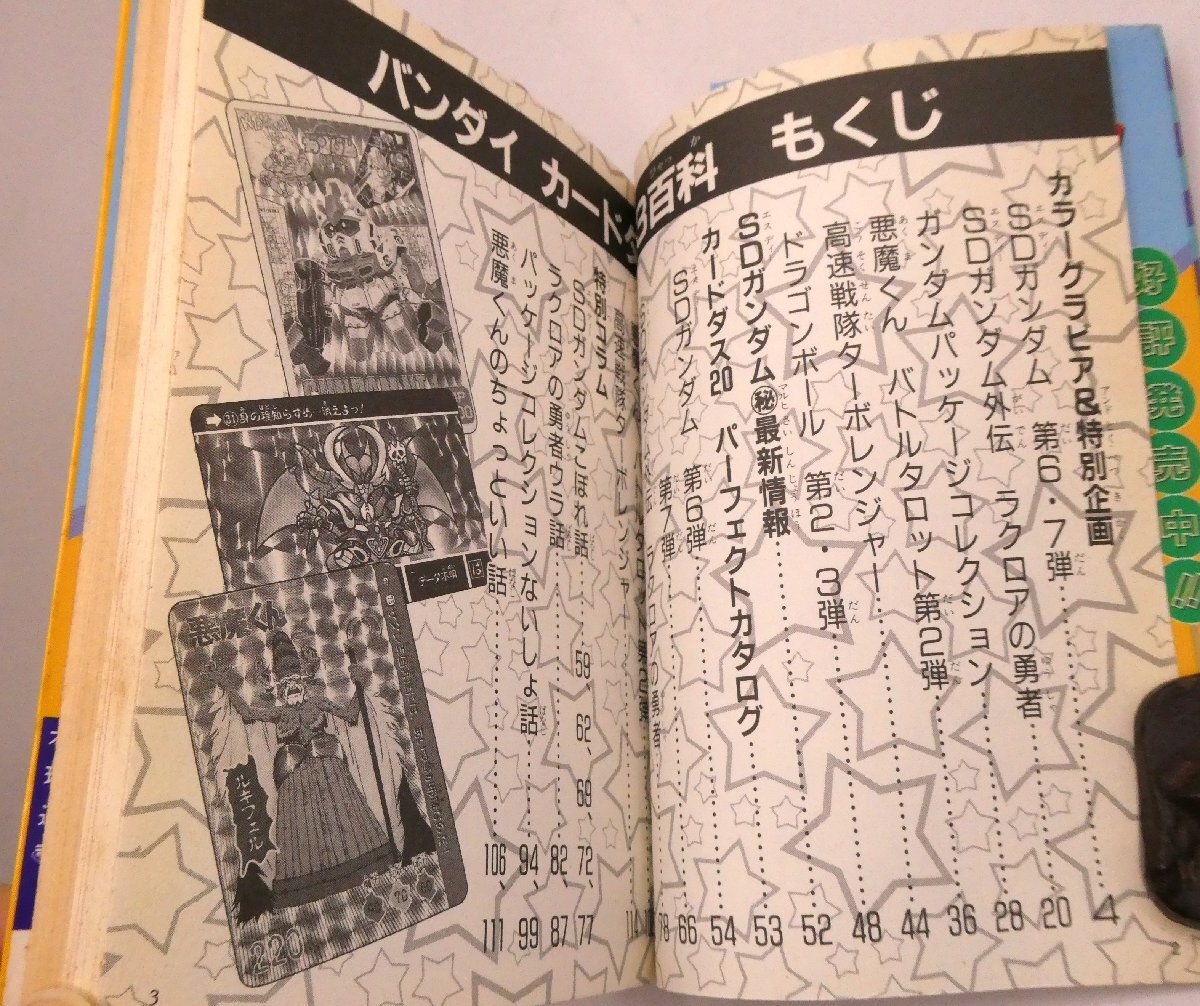 バンダイ カード
百科 もくじ
カラーグラビア&特別企画
SDガンダム 第6・7弾 4
SDガンダム外伝 ラクロアの勇者 20
ガンダムパッケージコレクション 28
悪魔くん バトルタロット第2弾 36
高速戦隊ターボレンジャー 44
ドラゴンボール 第2・3弾 48
SDガンダム㊙最新情報 52
カードダス20 パーフェクトカタログ 53
SDガンダム 第6弾 54
第7弾 66
の勇者 78
特別コラム
SDガンダムこぼれ話 59、62、69、72、77
ラクロアの勇者ウラ話 82、87
パッケージコレクションないしょ話 94、99
悪魔くんのちょっといい話 106、111
身の程知らずめ 消えろっ!
データ不明
悪魔くん
ルキフェル
220
好評発売中!!
2
3